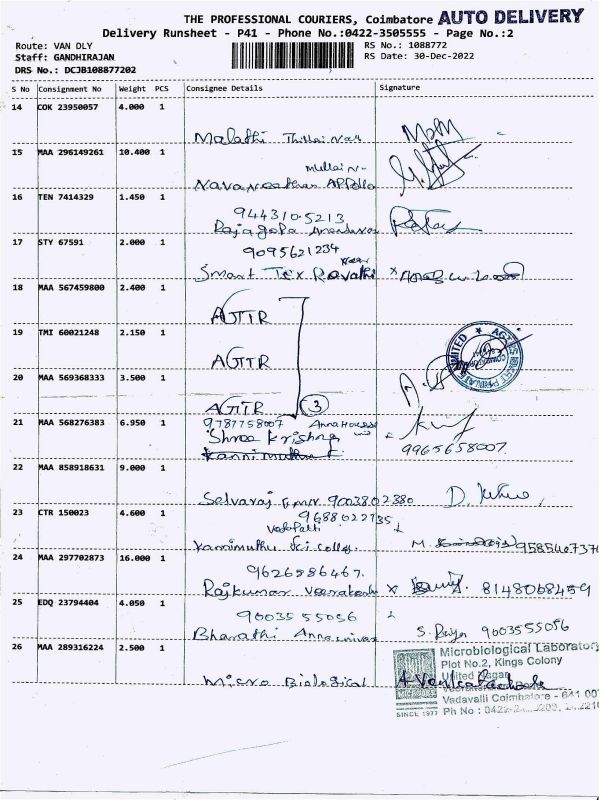 THE PROFESSIONAL COURIERS, Coimbatore AUTO DELIVERY
Delivery Runsheet - P41 - Phone No.:0422-3505555 - Page No.:2
Route: VAN DLY
RS No.: 1088772
Staff: GANDHIRAJAN
RS Date: 30-Dec-2022
DRS No.: DCJB108877202
S No Consignment No Weight PCS Consignee Details Signature
14 COK 23950057 4.000 1
Malathi
15 MAA 296149261 10.400 1
Mullai N-
Navaneethan Appollo
16 TEN 7414329 1.450 1
9443105213
Rajagopa
17 STY 67591 2.000 1
9095621234
Near
Smart Tex Revathi
18 MAA 567459800 2.400 1
AGTTR
19 TMI 60021248 2.150 1
AGTTR
20 MAA 569368333 3.500 1
AGTTR 3
21 MAA 568276383 6.950 1
9787758007
Shree Krishna
9965658007
22 MAA 858918631 9.000 1
Selvaraj 9003802380
23 CTR 150023 4.600 1
9688022735
Vadapatti
Kannimuthu
M. 958540737
24 MAA 297702873 16.000 1
9626586467.
Rajkumar x 8148068459
25 EDQ 23794404 4.050 1
9003555056
Bharathi
S. Priya 9003555056
26 MAA 289316224 2.500 1
Micro Biological
Microbiological Laboratory
Plot No.2, Kings Colony
United Nagar
Vadavalli Coimbatore - 641 00
SINCE 1977 Ph No : 0422-2